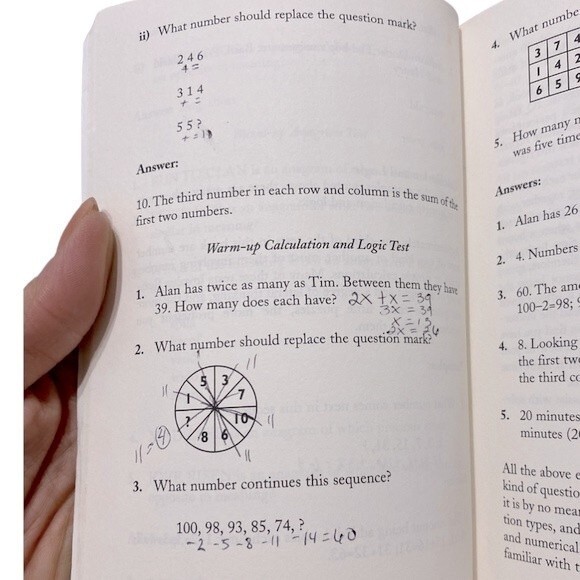 ii) What number should replace the question mark?
2 4 6
+ =
3 1 4
+ =
5 5 ?
+ = 10
Answer:
10. The third number in each row and column is the sum of the
first two numbers.
Warm-up Calculation and Logic Test
1. Alan has twice as many as Tim. Between them they have
39. How many does each have? 2x + x = 39
3x = 39
x = 13
2x = 26
2. What number should replace the question mark?
11
5 3
11
1 7
? 10
11
8 6
11 = 4
11
3. What number continues this sequence?
100, 98, 93, 85, 74, ?
-2 -5 -8 -11 -14 = 60
4. What numbe
3 7 4
1 4 2
6 5 9
5. How many n
was five time
Answers:
1. Alan has 26
2. 4. Numbers
3. 60. The amo
100–2=98; 9
4. 8. Looking
the first tw
the third co
5. 20 minutes
minutes (20
All the above e
kind of questio
it is by no mea
tion types, and
and numerical
familiar with t